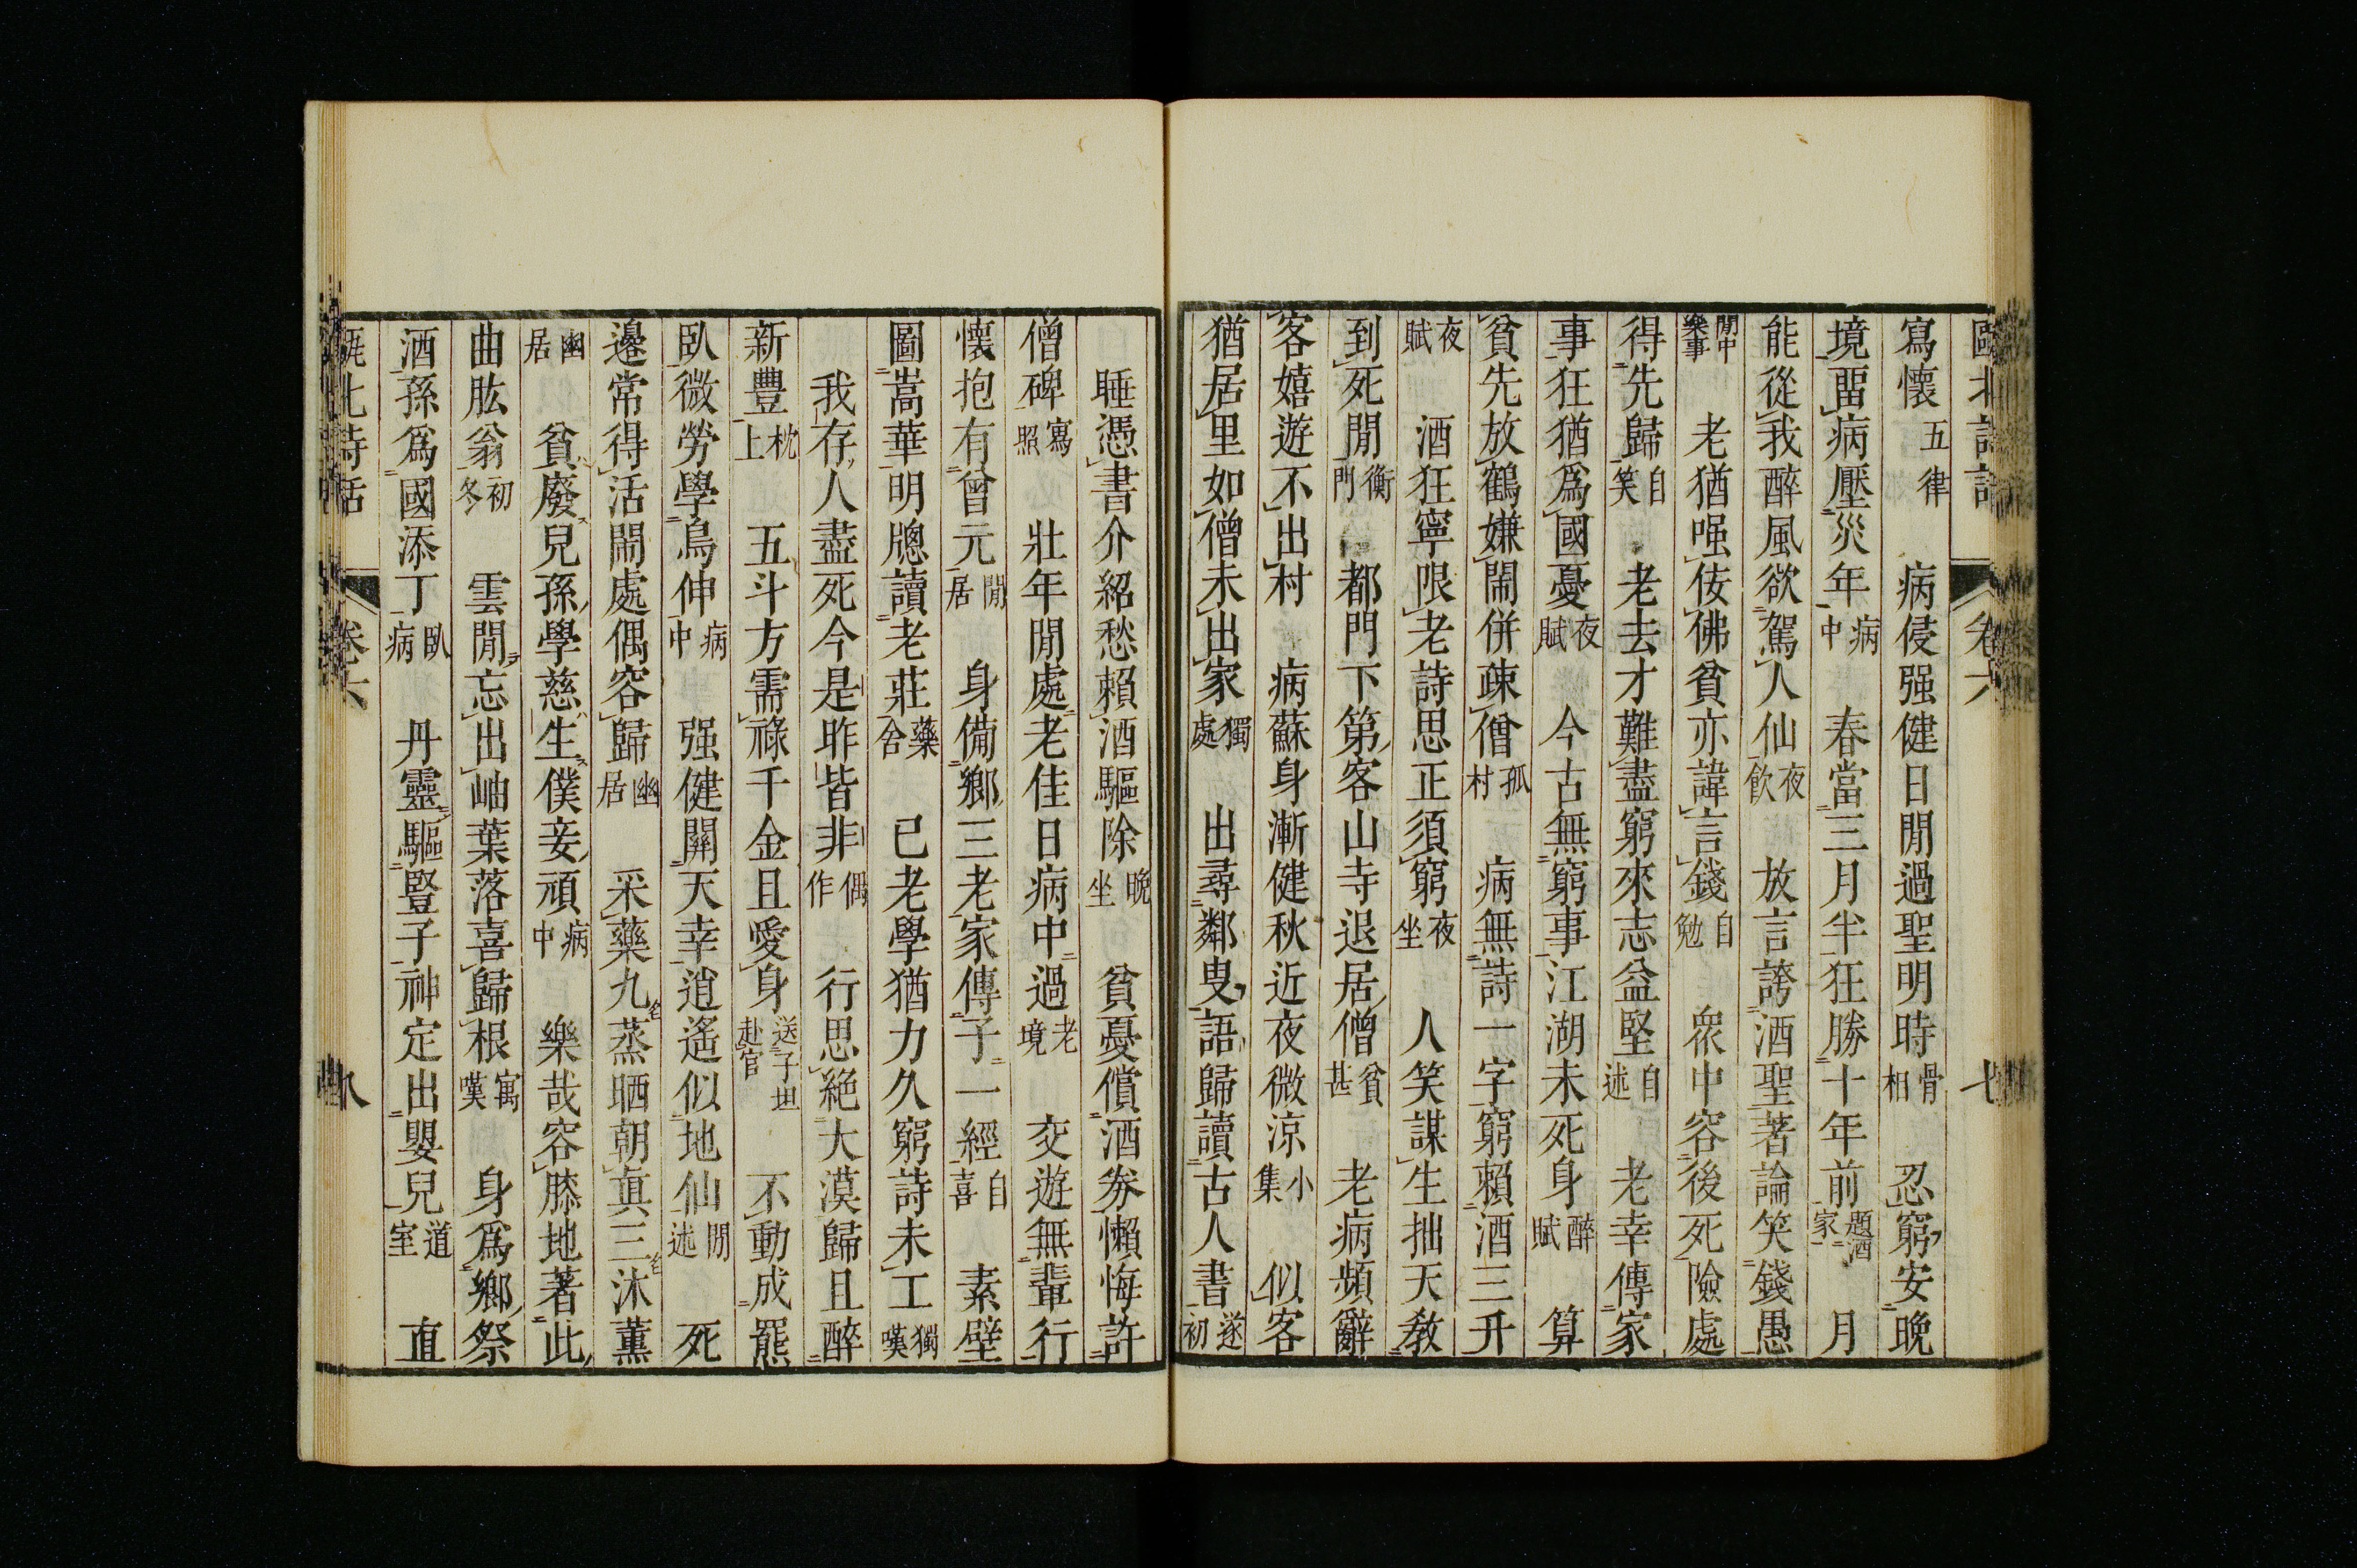 甌北詩話 卷六 七
寫懷五律 病侵强健日閒過聖明時骨相 忍窮安晚
境畱病壓災年病中 春當三月半狂勝十年前題酒家 月
能從我醉風欲駕人仙夜飲 放言誇酒聖著論笑錢愚
閒中樂事 老猶嗔佞彿貧亦諱言錢自勉 衆中容後死險處
得先歸自笑 老去才難盡窮來志益堅自述 老幸傳家
事狂猶爲國憂夜賦 今古無窮事江湖未死身醉賦 算
貧先放鶴嫌鬧併疎僧孤村 病無詩一字窮賴酒三升
夜賦 酒狂寧限老詩思正須窮夜坐 人笑謀生拙天教
到死閒衡門 都門下第客山寺退居僧貧甚 老病頻辭
客嬉遊不出村 病蘇身漸健秋近夜微涼小集 似客
猶居里如僧未出家獨處 出尋鄰叟語歸讀古人書遂初
睡憑書介紹愁賴酒驅除晚坐 貧憂償酒券懶悔許
僧碑寫照 壯年閒處老佳日病中過老境 交遊無輩行
懷抱有曾元閒居 身備鄉三老家傳子一經自喜 素壁
圖嵩華明牕讀老莊藥舍 已老學猶力久窮詩未工獨嘆
我存人盡死今是昨皆非偶作 行思絕大漠歸且醉
新豐枕上 五斗方需祿千金且愛身送子坦赴官 不動成羆
臥微勞學鳥伸病中 强健關天幸逍遙似地仙閒述 死
邊常得活鬧處偶容歸幽居 采藥九名蒸晒朝眞三名沐薰
幽居 貧廢兒孫學慈生僕妾頑病中 樂哉容膝地著此
曲肱翁初冬 雲閒忘出岫葉落喜歸根寓嘆 身爲鄉祭
酒孫爲國添丁臥病 丹靈驅豎子神定出嬰兒道室 直
甌北詩話 卷六 八